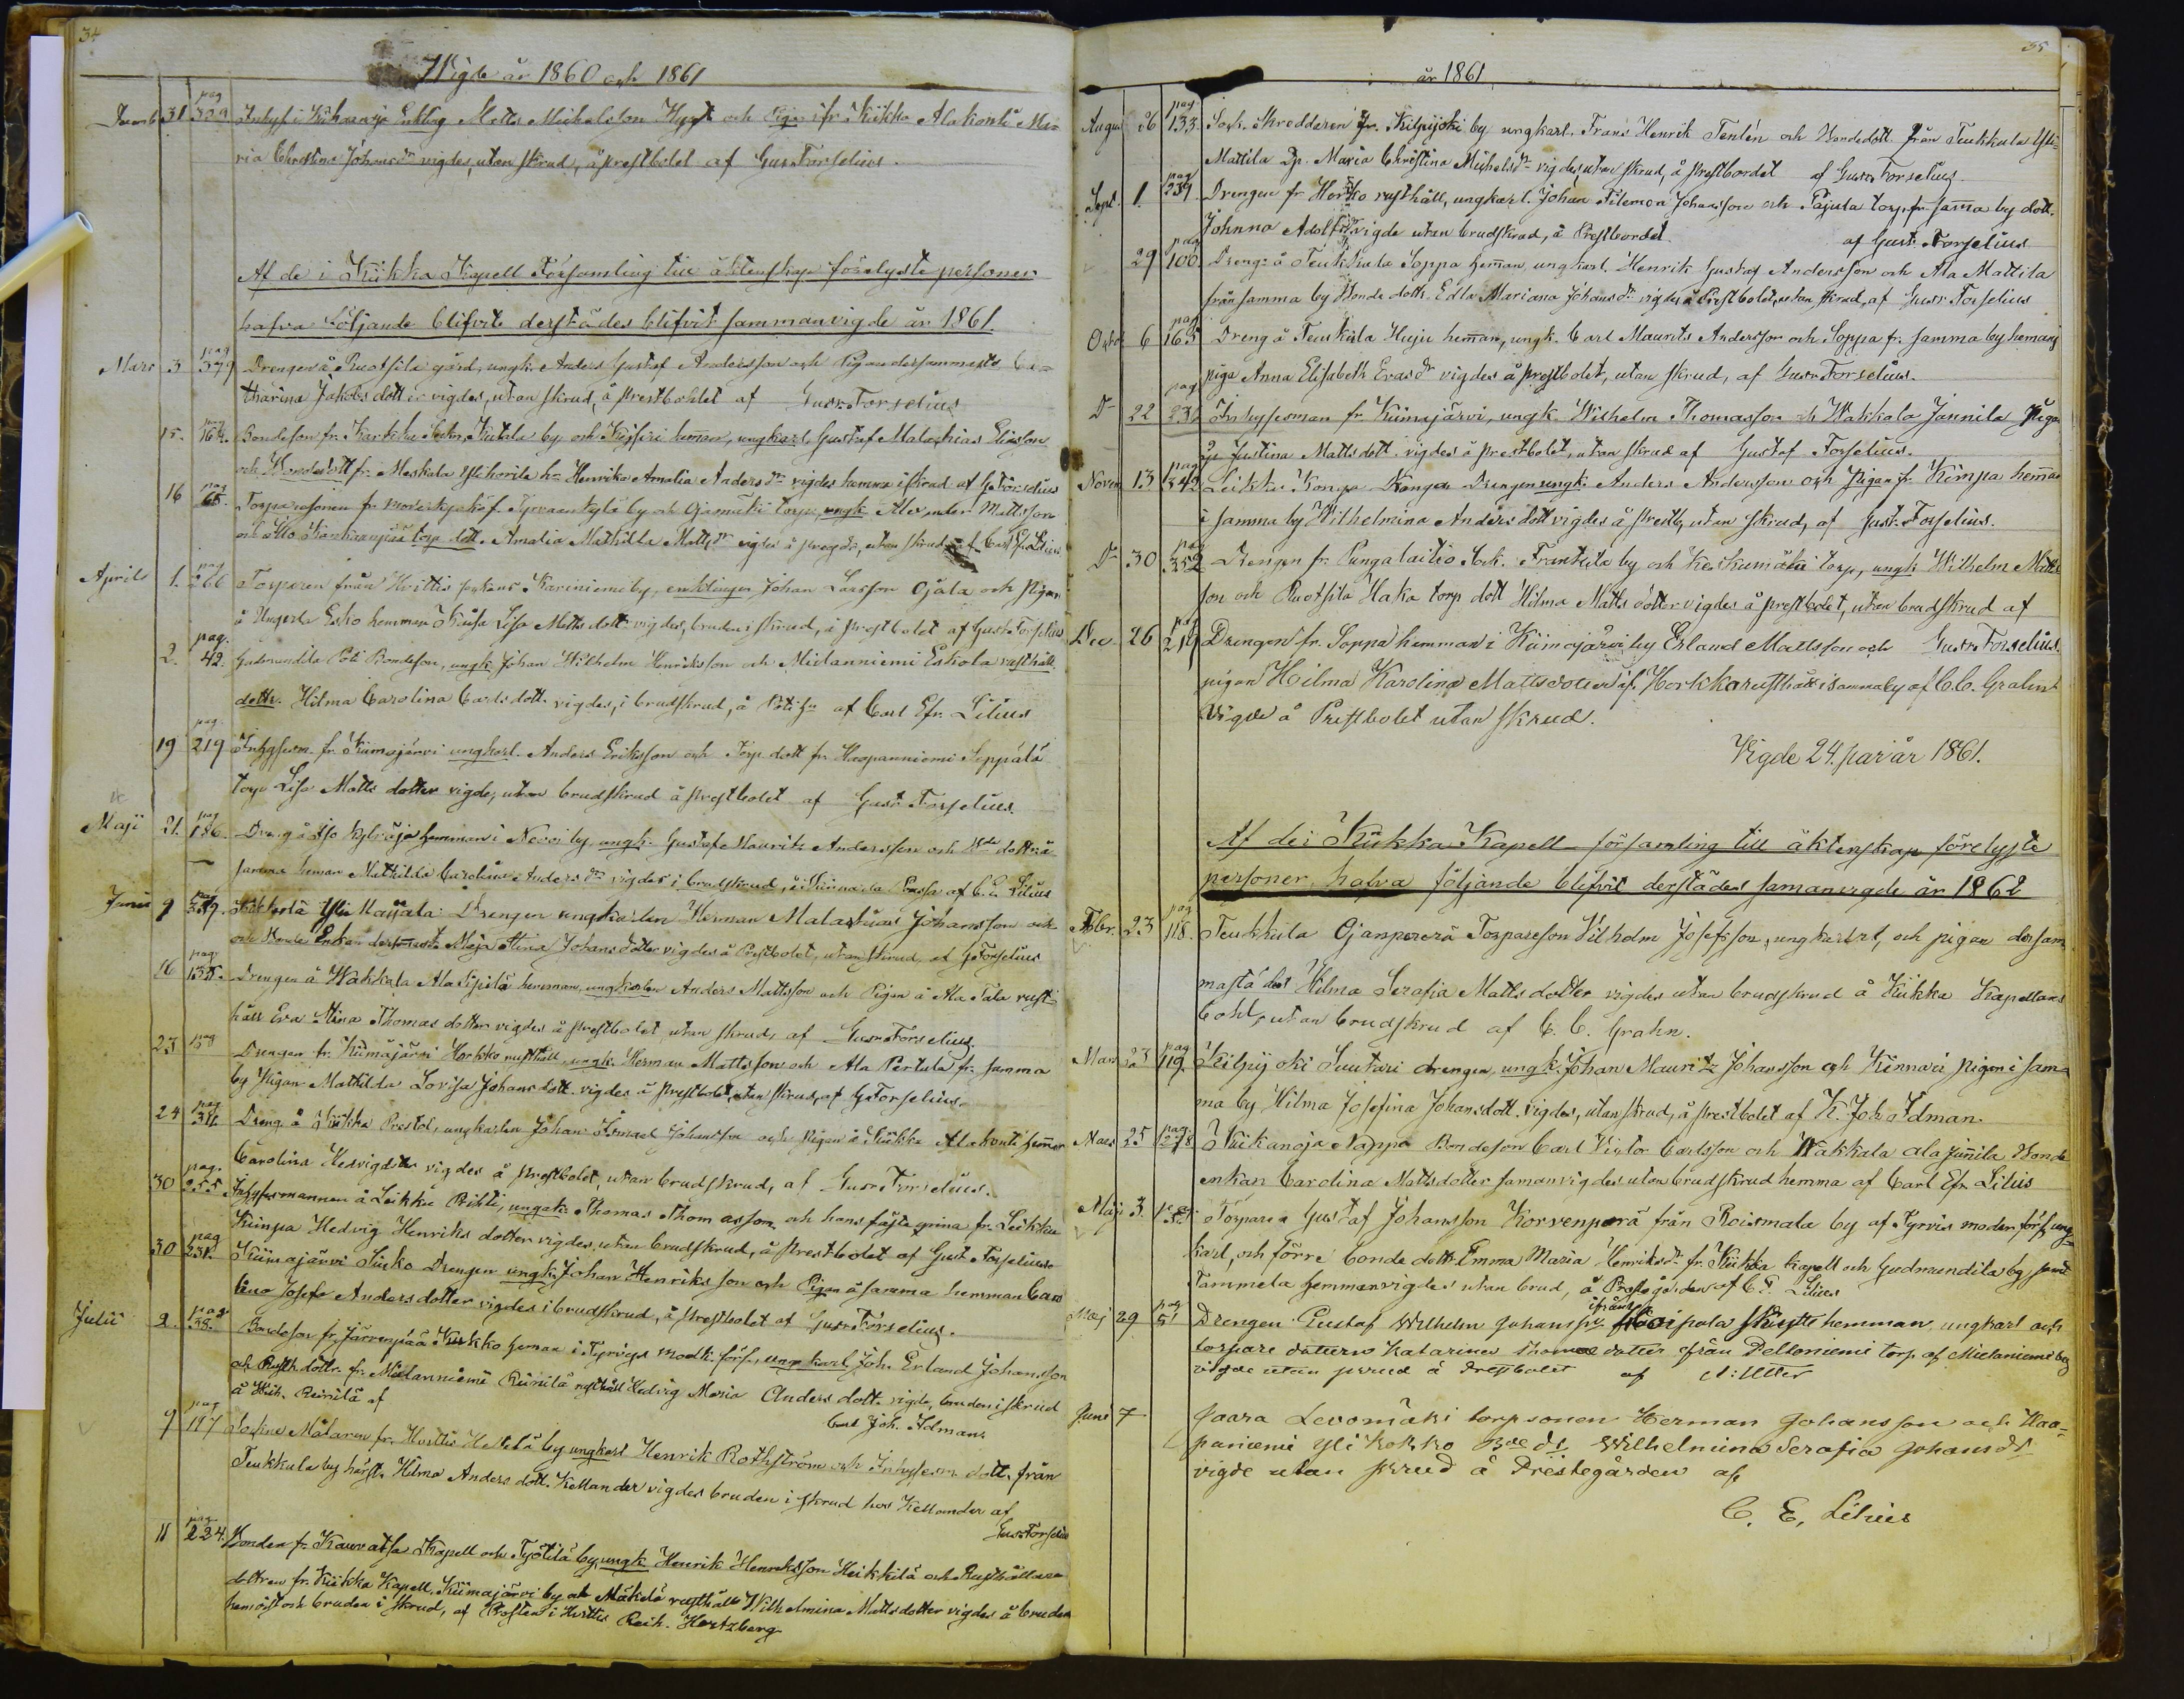 34
Wigde år 1860 och 1861
Decemb 31 pag 309 Inhys i Kiikanoja Enkling Matts Michelsson Hyyt och Pigan fr. Kiikka Alakonti Ma-
ria Christina Johansdr vigdes, utan skrud, å prestbolet af Gust. Forselius.
Af de i Kiikka Kapell Församling till äktenskap förelyste personer
hafva följande blifvit derstädes blifvit sammanvigde år 1861.
Mars 3 pag 379 Drengen å Ruotsila gård, ungk. Anders Gustaf Andersson och Pigan dersammasts Ca-
tharina Jakobs dotter vigdes, utan skrud, å prestbohlet af Gust. Forselius
15. pag 164. Bondeson fr. Karkku Kutala by och heman, ungkarl Gustaf Malachias Eliasson
och Bondedott fr. Meskala Ylihorila hn Henrika Amalia Andersdr vigdes hemma i skrud af G. Forselius
16 pag 65. Torparesonen fr. moderkyrkof. Tyrvaenkylä by och Ojamäki torp, ungk. Alexander Mattsson
och Illo torp dott. Amalia Mathilda Mattsdr vigdes å prestg., utan skrud af Carl Ef. Lilius
Aprill 1. pag 266 Torparen från Hvittis sockens Kariniemi by, enklingen Johan Larsson Ojala och Pigan
å Ungerla Esko hemman Kaisa Lisa Matts dotter vigdes, bruden i skrud, å prestbolet af Gust. Forselius
2. pag. 42. Gudmundila Poti Bondeson, ungk. Johan Wilhelm Henriksson och Mielanniemi Eskola rusthåll.
dottr. Hilma Carolina Carls dott. vigdes, i brudskrud, å af Carl Efr. Lilius
19 pag. 219 Inhyssm. fr. Kiimajärvi ungkarl. Anders Eriksson och Torp. dott fr. Haapanniemi Seppälä
torp Lisa Matts dotter vigde, utan brudskrud å prestbolet af Gust. Forselius.
Maji 21. pag 186. Dreng å Illo Kylväjä hemman i Nåovi by, ungk. Gustaf Mauritz Andersson och Bde dottr. å
samma heman Mathilda Carolina Andersdr vigdes i brudskrud, å af C. E. Lilius
Junii 9 pag 379. Ylli Maijala Drengen ungkarlen Herman Malachias Johansson och
och Bonde Enkan Maja Stina Johans dotter vigdes å Prestbolet, utan skrud, af G. Forselius
16 pag 135. Drengen å Wakkala Ala Sipilä hemman, ungkarlen Anders Mattsson och Pigan å Ala Tala rust-
håll Eva Stina Thomas dotter vigdes å prestbolet utan skrud, af Gust. Forselius.
23 pag Drengen fr. Kiimajärvi Horkko rusthåll, ungk. Herman Mattsson och Ala Pertula fr. samma
by Pigan Mathilda Lovisa Johans dott. vigdes å prestbolet, utan skrud, af G. Forselius.
24 pag 311. Dreng å Kiikka Prestol, ungkarlen Johan Ismael Johansson och Pigan å Kiikka Alakonti hemman
Carolina Hedvigdtr vigdes å prestbolet, utan brudskrud, af Gust. Forselius.
30 pag. 355 Inhysesmannen å Leikku Pihti, ungk. Thomas Thomasson och hans fästeqvina fr. Leikku
Kiinpa Hedvig Henriks dotter vigdes, utan brudskrud, å prestbolet af Gust. Forselius
30 pag 231. Kiimajärvi Sinko Drengen ungk. Johan Henriksson och Pigan å samma hemman Caro
lina Josefa Anders dotter vigdes i brudskrud, å prestbolet af Gust. Forselius.
Julii 2. pag. 38. Bondeson fr. Järvenpää Kiikko heman i Tyrvis modk. förs., ungkarl Joh. Erland Johansson
och Rusth. dottr. fr. Mielanniemi Reinilä rusthåll Hedvig Maria Anders dott. vigde, bruden i skrud
å Reinilä af Carl Joh. Idman.
9 pag 117 Målaren fr. Hvittis Heikkilä by ungkarl Henrik Rothström och Inhyssm. dott. från
Teukkula by Hilma Anders dott. Kellander vigdes bruden i skrud hos Kellander af
Gust. Forselius
11 pag 224. Bonden fr. Kauvatsa Kapell och Työtilä by, ungk. Henrik Henriksson Heikkilä och Rusthållare
dottren fr. Kiikka Kapell. Kiimajärvi by och Mäkelä rusthåll Wilhelmina Matts dotter vigdes å bruden
hemort och bruden i skrud, af Prosten i Hvittis Reih. Hertzberg
35
år 1861
August 26 pag 133. Sock. Skreddaren fr. Kilpijoki by ungkarl. Frans Henrik Tentén och Bondedott. från Teukkula Yli-
Mattila Dp. Maria Christina Michelsdr vigdes, utan skrud, å prestbordet af Gust. Forselius.
Sept. 1. pag 239. Drengen fr. Horkko rusthåll, ungkarl. Johan Filemon Johansson och Pajula torp. fr. samma by dott.
Johnna Adolfsdr vigde utan brudskrud, å Prestbordet af Gust. Forselius
29 pag 106 Dreng å Teukkula Soppa heman, ungkarl. Henrik Gustaf Andersson och Ala Mattila
från samma by Bonde dottr. Edla Mariana Johansdr vigdes å Prestbolet, utan skrud, af Gust. Forselius
Octob 6 pag 165 Dreng å Teukkula Huju heman, ungk. Carl Maurits Andersson och Soppa fr. samma by hemans
piga Anna Elisabeth Erasdr vigdes å prestbolet, utan skrud, af Gust. Forselius.
Do 22 pag 236 Inhysesman fr. Kiimajärvi, ungk. Wilhelm Thomasson och Wakkala Jannila Pigan
Justina Matts dott. vigdes å prestbolet, utan skrud af Gustaf Forselius.
Novem 13 pag 342 Leikku Konga Drengen ungk. Anders Andersson och Pigan fr. Kimpa heman
i samma by Wilhelmina Anders dott vigdes å prestb. utan skrud, af Gust. Forselius.
Do 30 pag 352 Drengen fr. Pungalaitio Sock. Frantsila by och Keskumäki torp, ungk Wilhelm Matts
son och Ruotsila Haka torp dott Hilma Matts dotter vigdes å prestbolet, utan brudskrud af
Dec. 26 pag 219 Drengen fr. Soppa hemman i Kiimajärvi by Erland Mattsson och Gust. Forselius.
pigan Hilma Karolina Matts dotter fr. Horkka rusthåll i samma by af C. C. Grahn
Vigde å Prestbolet utan skrud.
Vigde 24. par år 1861.
Af de i Kiikka Kapell församling till äktenskap förelyste
personer hafva följande blifvit derstädes samanvigde år 1862
Febr. 23 pag 118. Teukkula Ojanperä Torpareson Vilhelm Josefsson, ungkarl, och pigan dersam
mastädes Hilma Serafia Matts dotter vigdes utan brudskrud å Kiikka Kapellans
bohl, utan brudskrud af C. C. Grahn.
Mars 23 pag 119. Kilpijoki Suutari drengen, ungk. Johan Mauritz Johansson och Kinnari pigan i sam-
ma by Hilma Josefina Johansdott. vigdes, utan skrud, å prestbolet af K. Joh. Idman.
Mars 25 pag 278 Kiikanoja Nappa Bondeson Carl Victor Carlsson och Wakkala ala Jannila Bonde
enkan Carolina Mattsdotter samanvigdes utan brudskrud hemma af Carl Efr. Lilius
Maji 3. pag 55 Torparen Gustaf Johansson Korvenperä från Roismala by af Tyrvis moder förs. ung-
karl, och förre bonde dott. Emma Maria Henriksdr fr. Kiikka Kapell och Gudmundila by, samt
Tammela hemman vigdes utan brud, å Prestegården af C. E. Lilius
Maj 29 pag 51 Drengen Gustaf Wilhelm Johansson ifrån hemman ungkarl och
torpare dotern Katarina Thomas doter ifrån Peltoniemi torp af Mielaniemi by
vigde utan skrud å Prestbolet af A: Utter
Juni 7 Jaara Levomäki torpsonen Herman Johansson och Haa-
paniemi Yli Kokko Wilhelmina Serafia Johansdr
vigde utan skrud å Prestegården af
C. E. Lilius